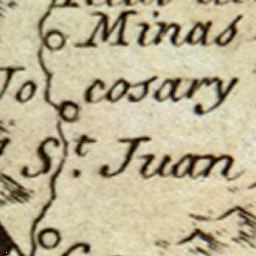 Minas
Jocosary
St. Juan